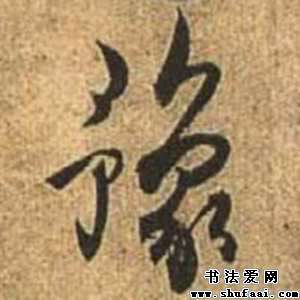 豫
书法爱网
www.shufaai.com